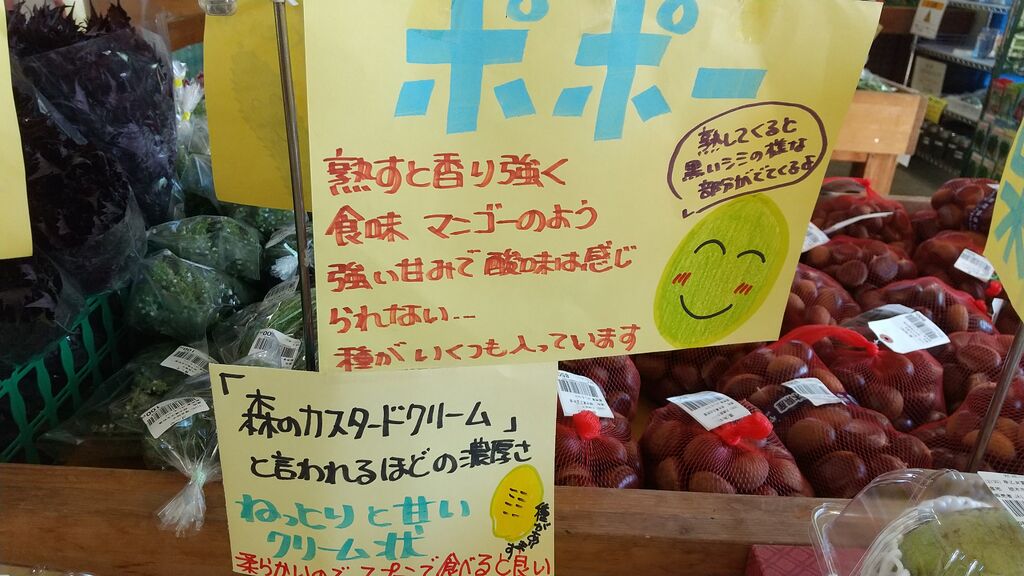 ポポー
熟してくると
黒いシミの様な
部分がでてくるよ
熟すと香り強く
食味 マンゴーのよう
強い甘みで酸味は感じ
られない…
種がいくつも入っています
「森のカスタードクリーム」
と言われるほどの濃厚さ
ねっとりと甘い
クリーム状
種があります
柔らかいのでスプーンで食べると良い